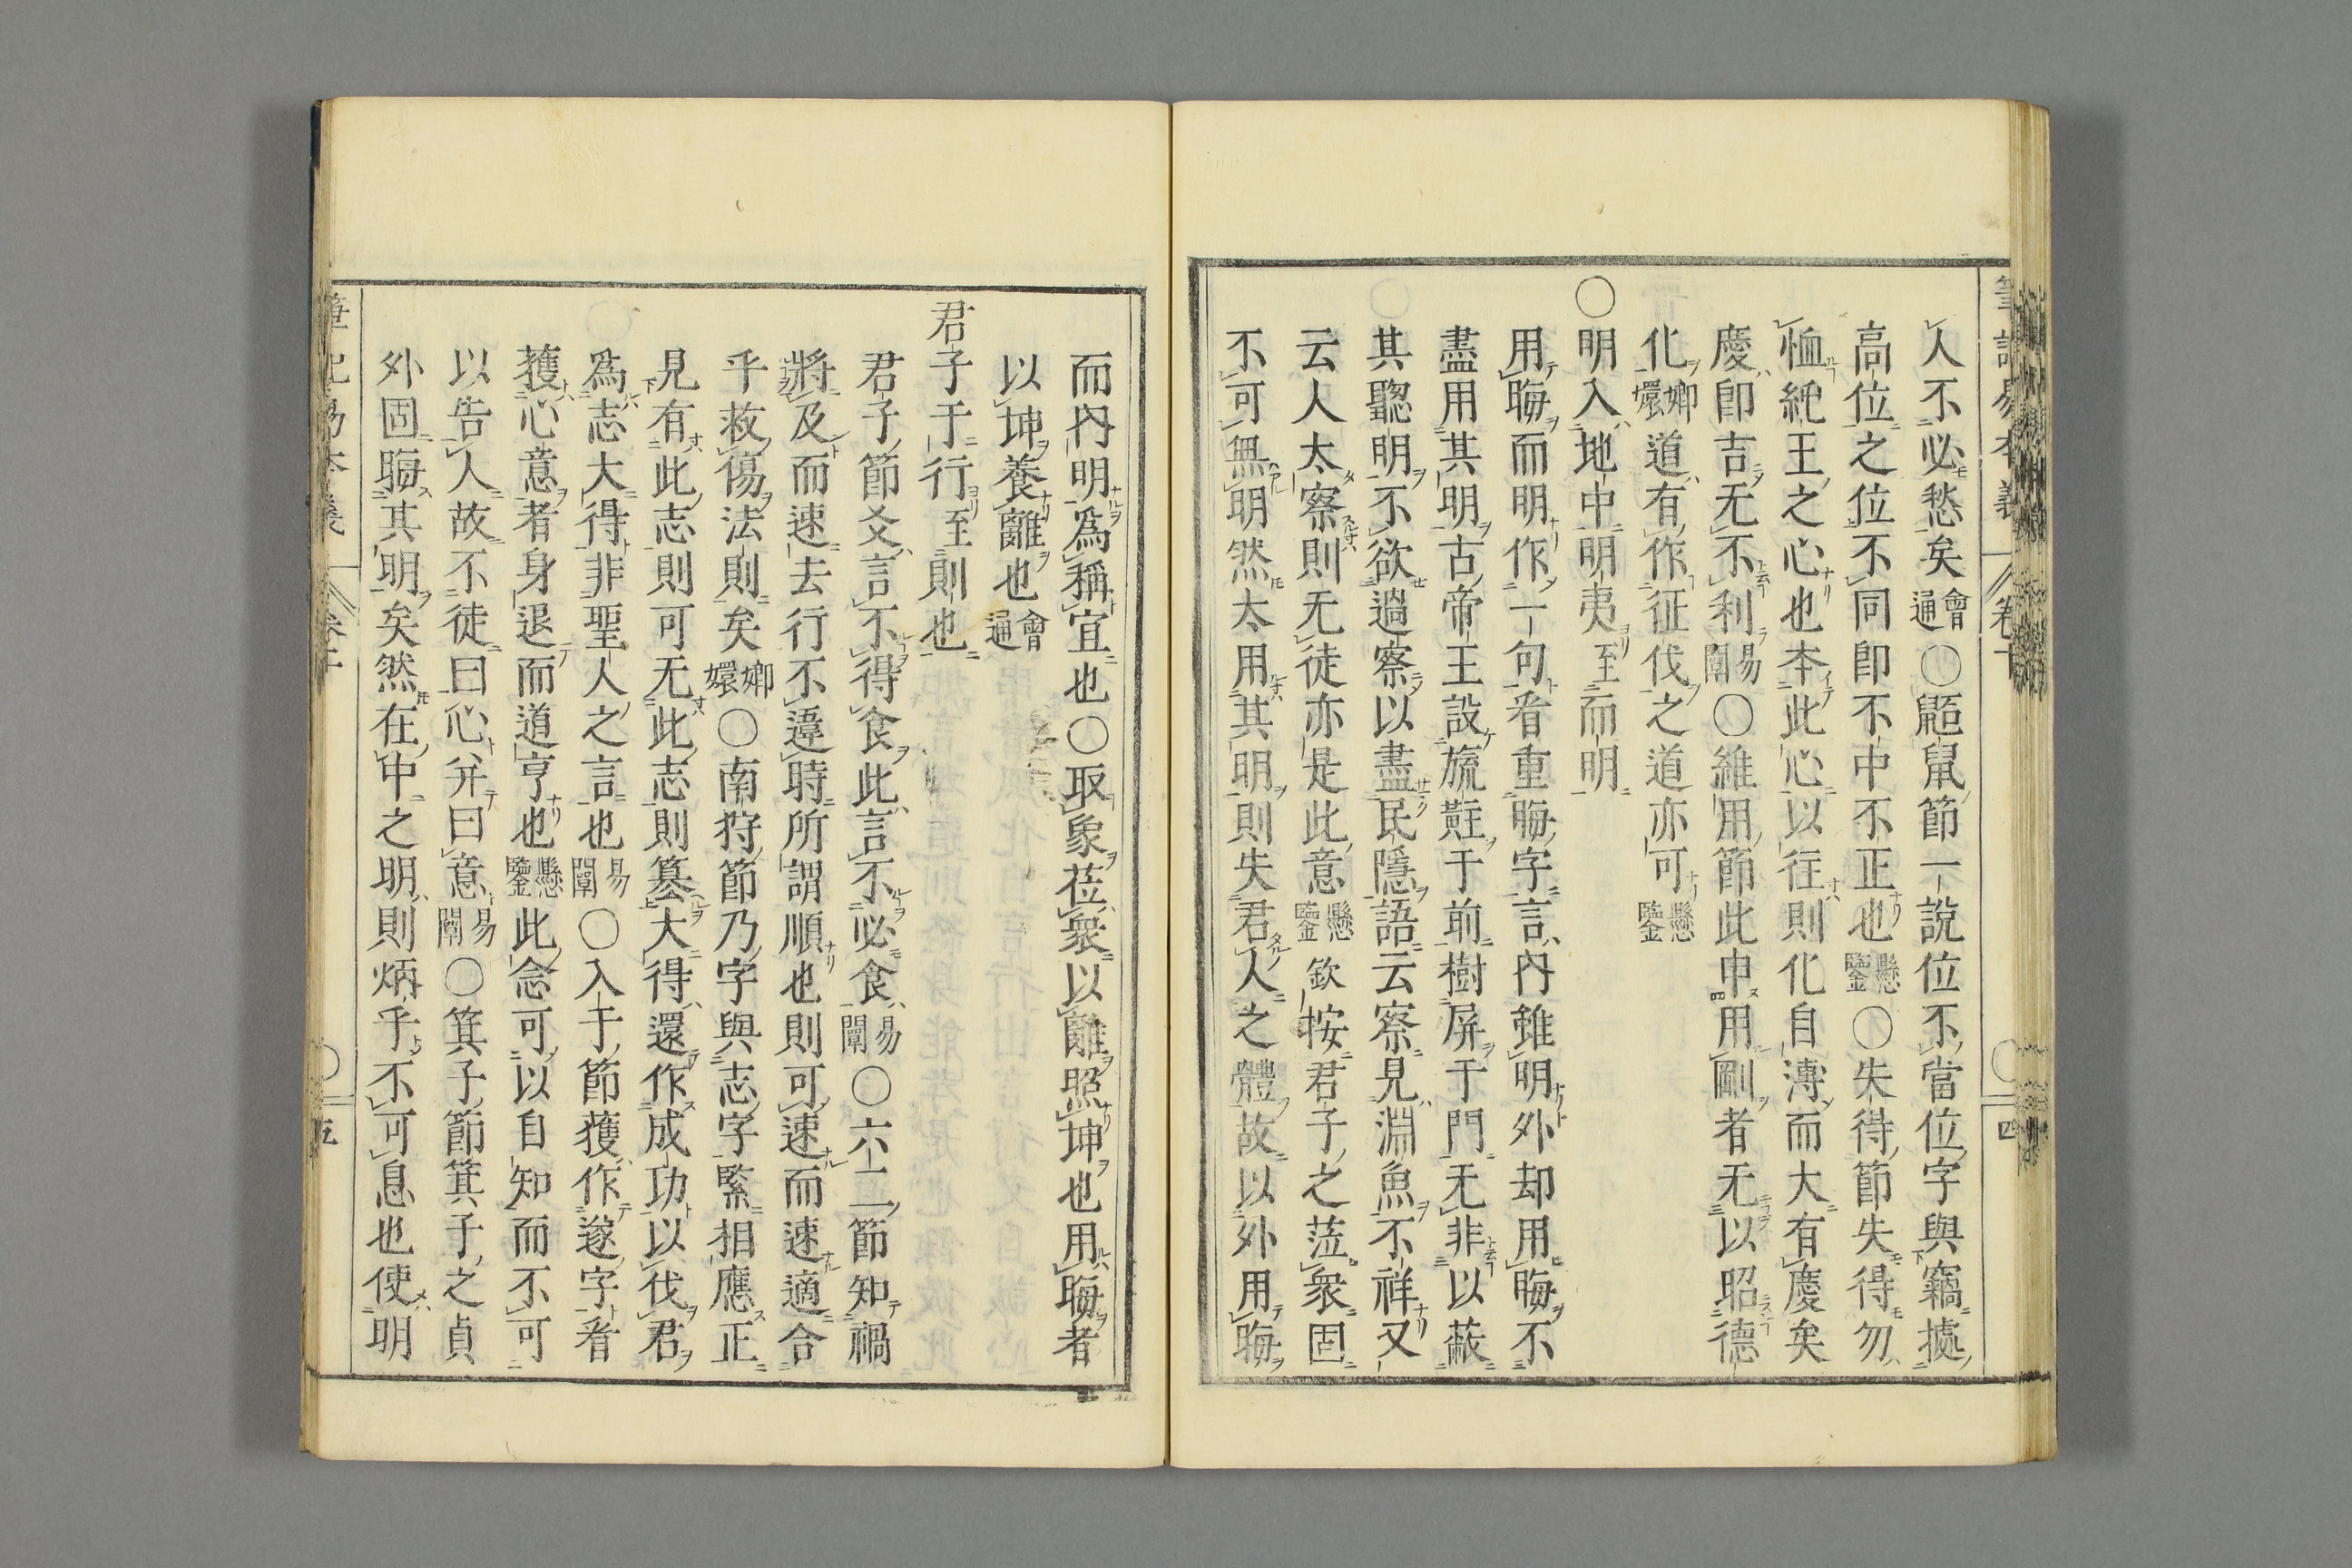 人不必愁矣會通〇鼫鼠節一說位不當位字與竊據
高位之位不同卽不中不正也懸鑒〇失得節失得勿
恤絶王之心也本此心以往則化自溥而大有慶矣
慶卽吉无不利易闡〇維用節此申用剛者无以昭德
化嫏嬛道有作征伐之道亦可懸鑒
〇明入地中明夷至而明
用晦而明作一句看重晦字言內雖明外却用晦不
盡用其明古帝王設旒黈于前樹屏于門无非以蔽
其聽明不欲過察以盡民隱語云察見淵魚不祥又
云人太察則无徒亦是此意懸鑒欽按君子之蒞衆固
不可無明然太用其明則失君人之體故以外用晦
筆記易本義
四
而內明爲稱宜也〇取象莅衆以離照坤也用晦者
以坤養離也會通
君子于行至則也
君子節爻言不得食此言不必食易闡〇六二節知禍
將及而速去行不違時所謂順也則可速而速適合
乎救傷法則矣嫏嬛〇南狩節乃字與志字緊相應正
見有此志則可无此志則簒大得還作成功以伐君
爲志大得非聖人之言也易闡〇入于節獲作遂字看
獲心意者身退而道亨也懸鑒此念可以自知而不可
以告人故不徒曰心并曰意易闡〇箕子節箕子之貞
外固晦其明矣然在中之明則炳乎不可息也使明
五